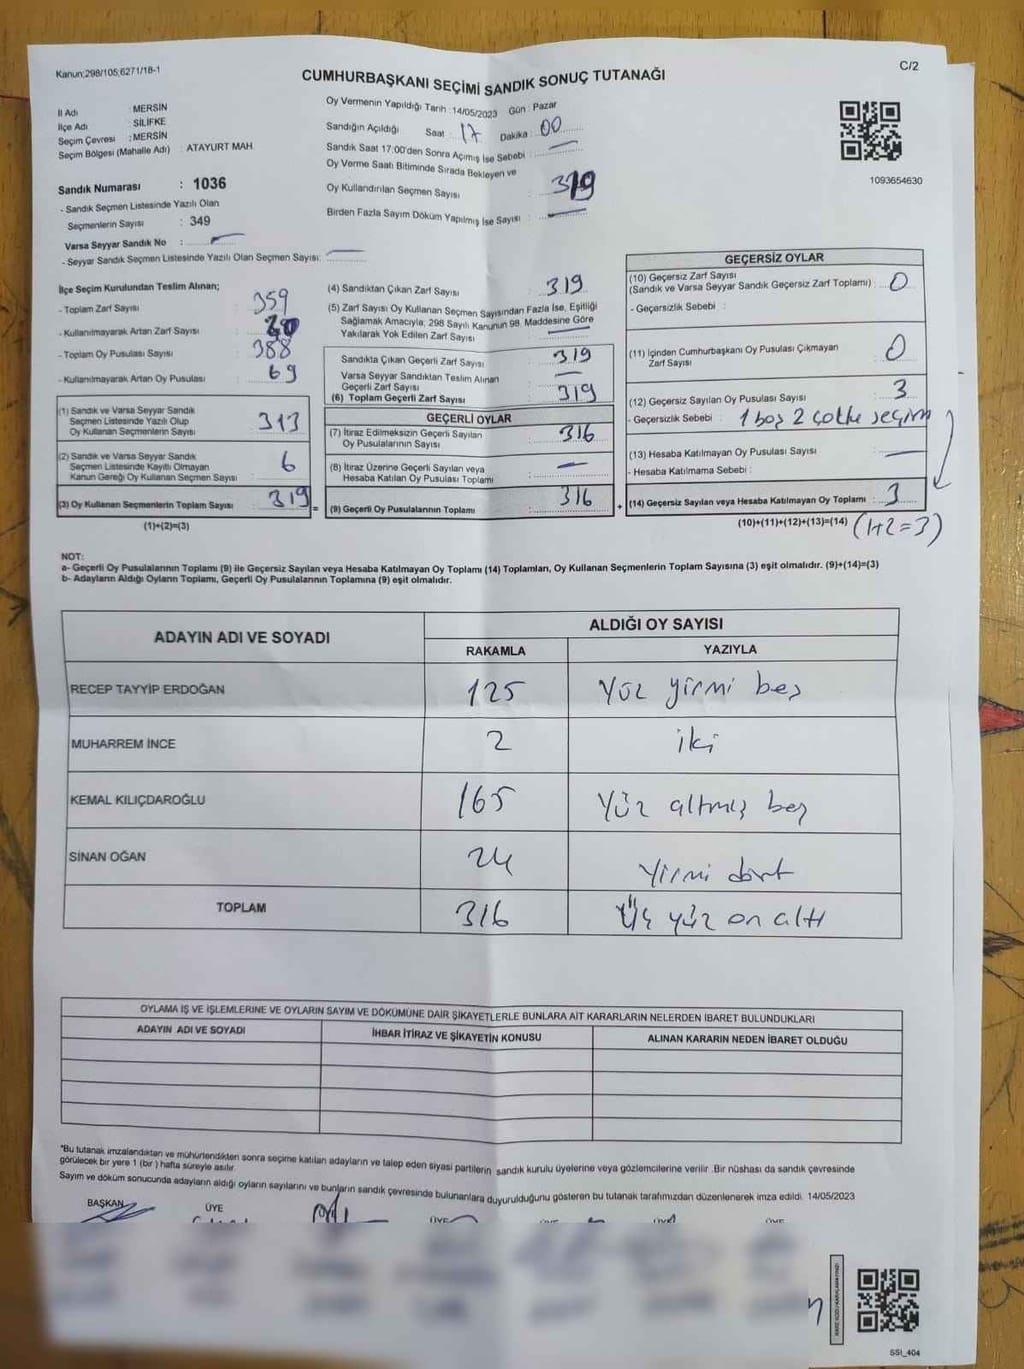 Kanun;298/105;6271/18-1
C/2
CUMHURBAŞKANI SEÇİMİ SANDIK SONUÇ TUTANAĞI
İl Adı : MERSİN
İlçe Adı : SİLİFKE
Seçim Çevresi : MERSİN
Seçim Bölgesi (Mahalle Adı) : ATAYURT MAH
Oy Vermenin Yapıldığı Tarih : 14/05/2023 Gün : Pazar
Sandığın Açıldığı Saat : 17 Dakika : 00
Sandık Saat 17:00'den Sonra Açılmış İse Sebebi :
Oy Verme Saati Bitiminde Sırada Bekleyen ve
Oy Kullandırılan Seçmen Sayısı : 319
Birden Fazla Sayım Döküm Yapılmış İse Sayısı :
1093654630
Sandık Numarası : 1036
- Sandık Seçmen Listesinde Yazılı Olan
Seçmenlerin Sayısı : 349
Varsa Seyyar Sandık No :
- Seyyar Sandık Seçmen Listesinde Yazılı Olan Seçmen Sayısı:
İlçe Seçim Kurulundan Teslim Alınan;
- Toplam Zarf Sayısı : 359
- Kullanılmayarak Artan Zarf Sayısı
- Toplam Oy Pusulası Sayısı : 388
- Kullanılmayarak Artan Oy Pusulası : 69
(1) Sandık ve Varsa Seyyar Sandık
Seçmen Listesinde Yazılı Olup
Oy Kullanan Seçmenlerin Sayısı : 313
(2) Sandık ve Varsa Seyyar Sandık
Seçmen Listesinde Kayıtlı Olmayan
Kanun Gereği Oy Kullanan Seçmen Sayısı : 6
(3) Oy Kullanan Seçmenlerin Toplam Sayısı : 319 =
(1)+(2)=(3)
(4) Sandıktan Çıkan Zarf Sayısı : 319
(5) Zarf Sayısı Oy Kullanan Seçmen Sayısından Fazla İse, Eşitliği
Sağlamak Amacıyla; 298 Sayılı Kanunun 98. Maddesine Göre
Yakılarak Yok Edilen Zarf Sayısı :
Sandıkta Çıkan Geçerli Zarf Sayısı : 319
Varsa Seyyar Sandıktan Teslim Alınan
Geçerli Zarf Sayısı :
(6) Toplam Geçerli Zarf Sayısı : 319
GEÇERLİ OYLAR
(7) İtiraz Edilmeksizin Geçerli Sayılan
Oy Pusulalarının Sayısı : 316
(8) İtiraz Üzerine Geçerli Sayılan veya
Hesaba Katılan Oy Pusulası Toplamı :
(9) Geçerli Oy Pusulalarının Toplamı : 316 +
GEÇERSİZ OYLAR
(10) Geçersiz Zarf Sayısı
(Sandık ve Varsa Seyyar Sandık Geçersiz Zarf Toplamı) : 0
- Geçersizlik Sebebi :
(11) İçinden Cumhurbaşkanı Oy Pusulası Çıkmayan
Zarf Sayısı : 0
(12) Geçersiz Sayılan Oy Pusulası Sayısı : 3
- Geçersizlik Sebebi : 1 boş 2 çokle seçim
(13) Hesaba Katılmayan Oy Pusulası Sayısı :
- Hesaba Katılmama Sebebi :
(14) Geçersiz Sayılan veya Hesaba Katılmayan Oy Toplamı : 3
(10)+(11)+(12)+(13)=(14) (1+2=3)
NOT:
a- Geçerli Oy Pusulalarının Toplamı (9) ile Geçersiz Sayılan veya Hesaba Katılmayan Oy Toplamı (14) Toplamları, Oy Kullanan Seçmenlerin Toplam Sayısına (3) eşit olmalıdır. (9)+(14)=(3)
b- Adayların Aldığı Oyların Toplamı, Geçerli Oy Pusulalarının Toplamına (9) eşit olmalıdır.
ADAYIN ADI VE SOYADI
ALDIĞI OY SAYISI
RAKAMLA YAZIYLA
RECEP TAYYİP ERDOĞAN 125 Yüz yirmi beş
MUHARREM İNCE 2 iki
KEMAL KILIÇDAROĞLU 165 Yüz altmış beş
SİNAN OĞAN 24 Yirmi dört
TOPLAM 316 Üç yüz on altı
OYLAMA İŞ VE İŞLEMLERİNE VE OYLARIN SAYIM VE DÖKÜMÜNE DAİR ŞİKAYETLERLE BUNLARA AİT KARARLARIN NELERDEN İBARET BULUNDUKLARI
ADAYIN ADI VE SOYADI İHBAR İTİRAZ VE ŞİKAYETİN KONUSU ALINAN KARARIN NEDEN İBARET OLDUĞU
*Bu tutanak imzalandıktan ve mühürlendikten sonra seçime katılan adayların ve talep eden siyasi partilerin sandık kurulu üyelerine veya gözlemcilerine verilir .Bir nüshası da sandık çevresinde
görülecek bir yere 1 (bir ) hafta süreyle asılır.
Sayım ve döküm sonucunda adayların aldığı oyların sayılarını ve bunların sandık çevresinde bulunanlara duyurulduğunu gösteren bu tutanak tarafımızdan düzenlenerek imza edildi. 14/05/2023
BAŞKAN ÜYE ÜYE
SSI_404